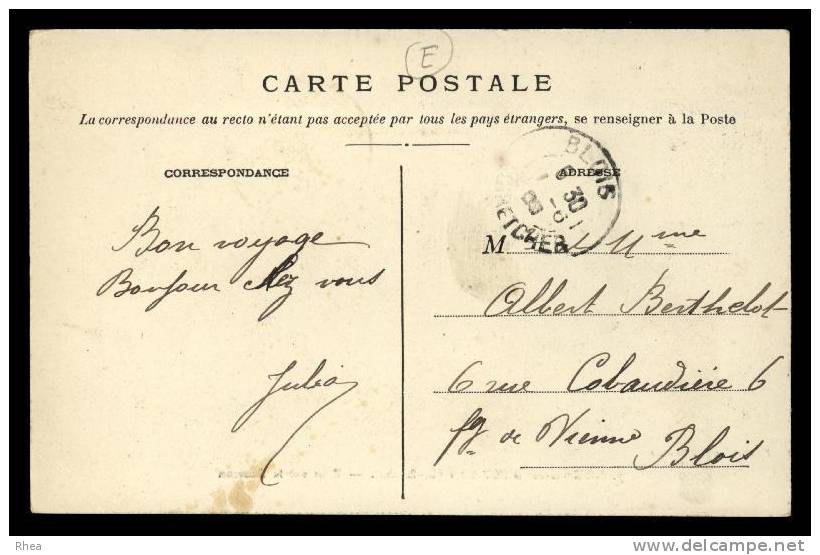 E
CARTE POSTALE
La correspondance au recto n'étant pas acceptée par tous les pays étrangers, se renseigner à la Poste
CORRESPONDANCE
ADRESSE
BLOIS
6 30
ET CHER
Bon voyage
Bonjour chez vous
Julia
M et Mme
Albert Berthelot
6 rue Cobaudière 6
fg de Vienne
Blois
Rhea
www.delcampe.net